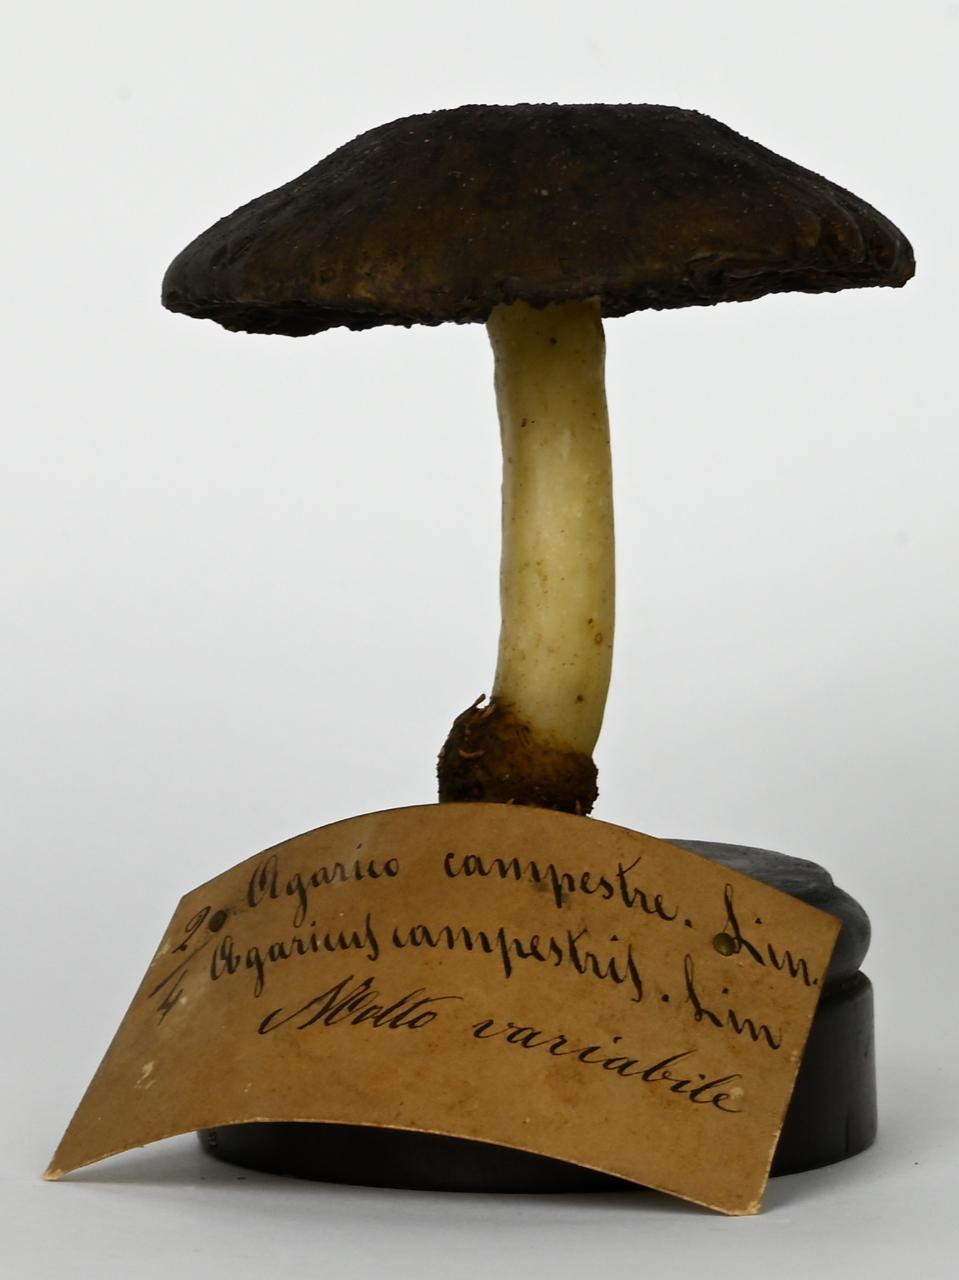 Agarico campestre. Lin.
2 Agaricus campestris. Lin
4 Molto variabile